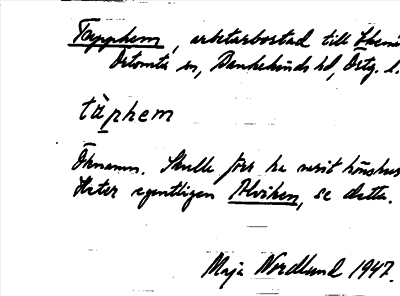 Tapphem, arbetarbostad till Skenä
Örtomta sn, Bankekinds hd, Östg. l.
tàphem
Öknamn. Skulle förr ha varit hönshus
Heter egentligen Alviken, se detta.
Maja Nordlund 1947.